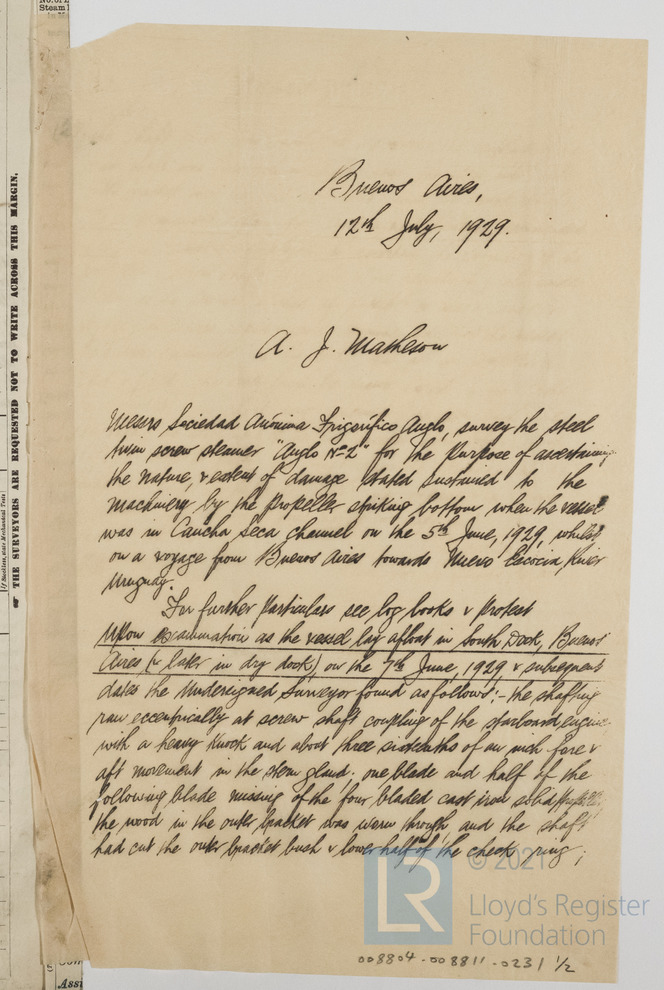 No. of
Steam
THE SURVEYORS ARE REQUESTED NOT TO WRITE ACROSS THIS MARGIN.
Buenos Aires,
12th July, 1929.
A. J. Matheson
Messrs Sociedad Anónima Frigorífico Anglo, survey the steel
twin screw steamer "Anglo No 2" for the purpose of ascertaining
the nature, & extent of damage stated sustained to the
machinery by the propeller striking bottom when the vessel
was in Cancha Seca channel on the 5th June, 1929, whilst
on a voyage from Buenos Aires towards Nuevo Escocia, River
Uruguay.
For further particulars see log books & protest
Upon examination as the vessel lay afloat in South Dock, Buenos
Aires, (& later in dry dock) on the 7th June, 1929 & subsequent
dates the undersigned Surveyor found as follows:- the shafting
ran eccentrically at screw shaft coupling of the starboard engine
with a heavy knock and about three sixteenths of an inch fore &
aft movement in the stern gland; one blade and half of the
following blade missing of the four bladed cast iron solid
the wood in the outer bracket was worn through, and the shaft
had cut the outer bracket bush & lower half of the check ring;
LR
© 2021
Lloyd's Register
Foundation
008804-008811-0231 1/2